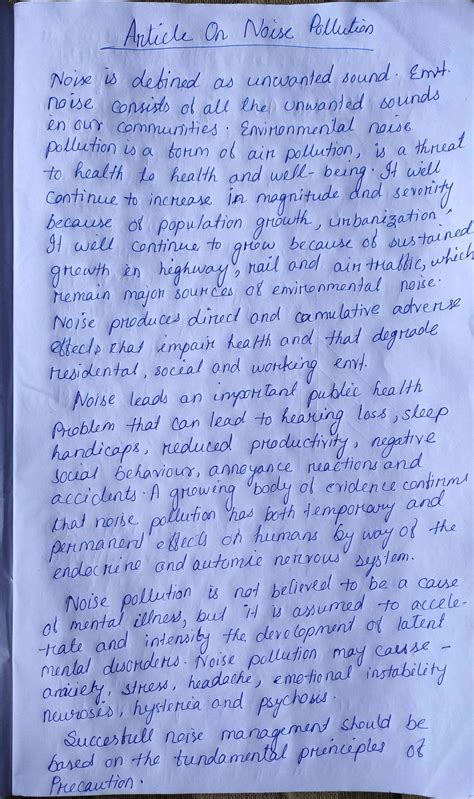 Article On Noise Pollution
Noise is defined as unwanted sound. Envt.
noise consists of all the unwanted sounds
in our communities. Environmental noise
pollution is a form of air pollution, is a threat
to health to health and well-being. It will
continue to increase in magnitude and severity
because of population growth, urbanization,
It will continue to grow because of sustained
growth in highway, rail and air traffic, which
remain major sources of environmental noise.
Noise produces direct and camulative adverse
effects that impair health and that degrade
residental, social and working envt.
Noise leads an important public health
Problem that can lead to hearing loss, sleep
handicaps, reduced productivity, negative
social behaviour, annoyance reactions and
accidents. A growing body of evidence confirms
that noise pollution has both temporary and
permanent effects on humans by way of the
endocrine and automic nervous system.
Noise pollution is not believed to be a cause
of mental illness, but it is assumed to accele-
-rate and intensity the development of latent
mental disorders. Noise pollution may cause -
anxiety, stress, headache, emotional instability
neurosis, hysteria and psychosis.
Succesfull noise management should be
based on the fundamental principles of
Precaution.